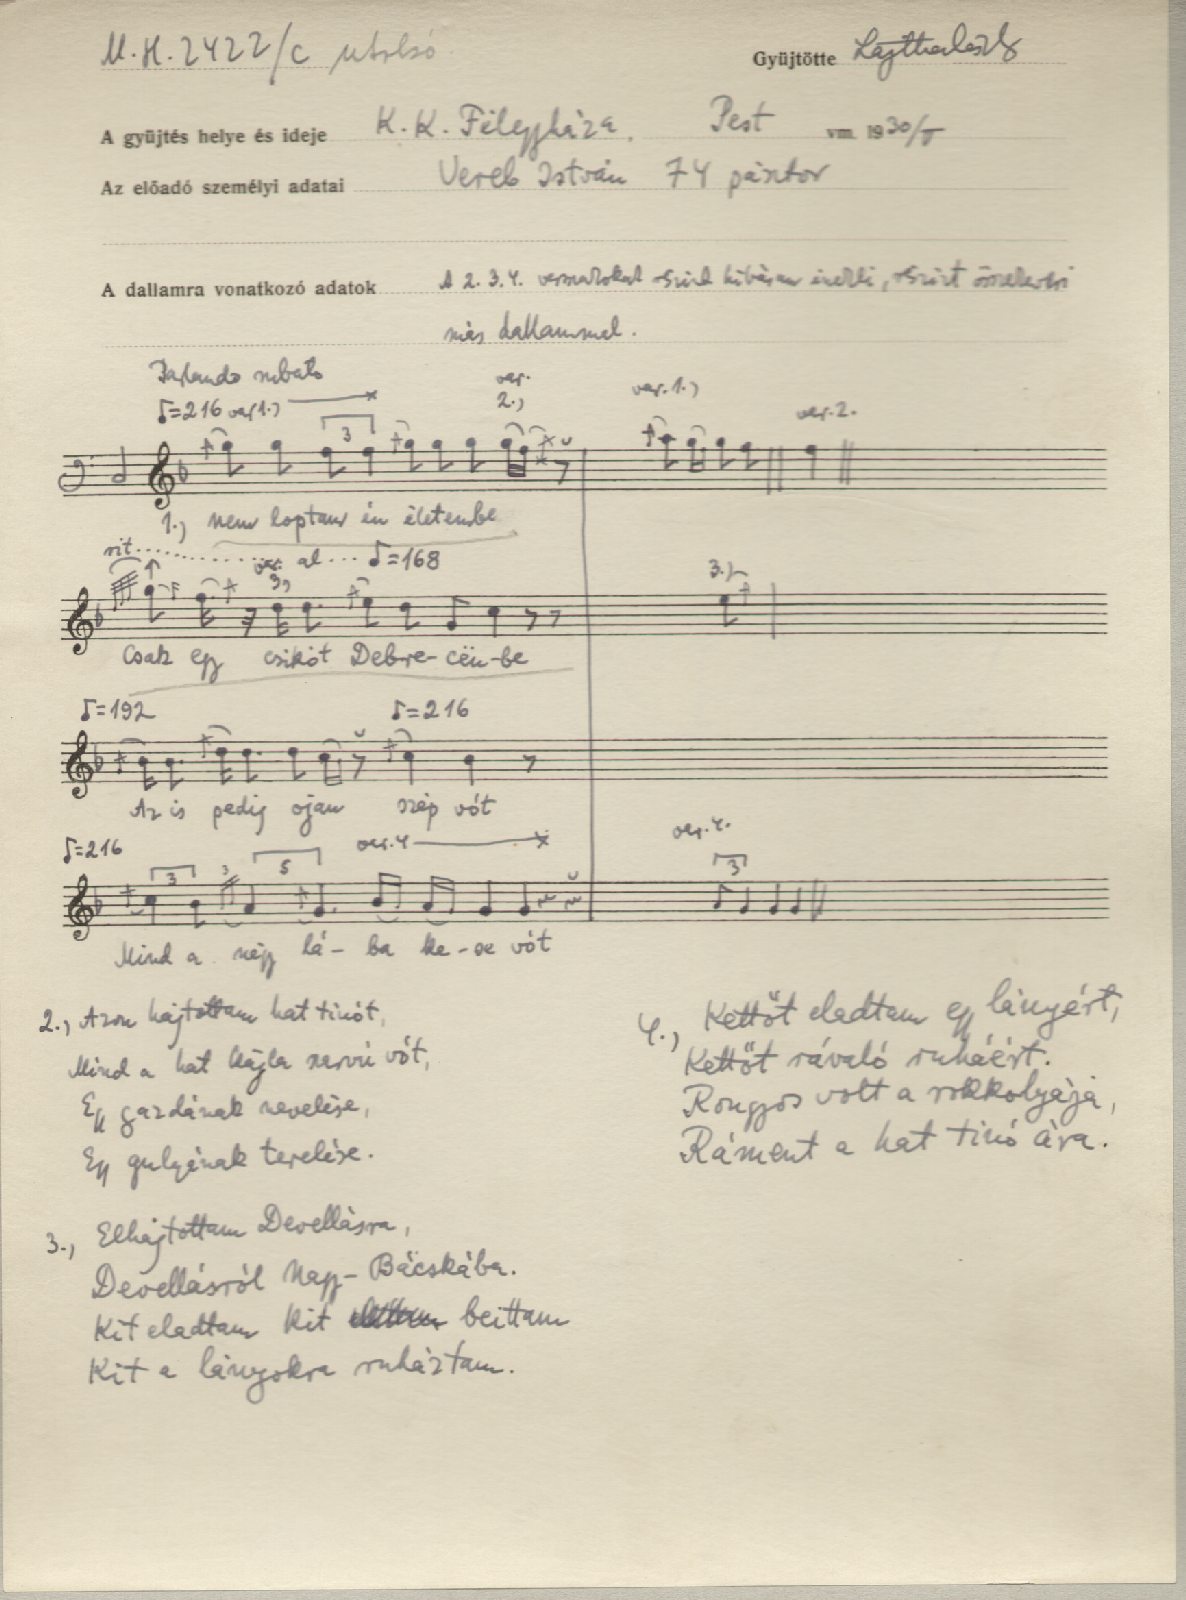 M.H. 2422/c utolsó
Gyüjtötte Lajtha László
A gyüjtés helye és ideje K. K. Félegyháza. Pest vm. 1930/V
Az előadó személyi adatai Vereb István 74 pásztor
A dallamra vonatkozó adatok A 2. 3. 4. versszakokat részint hibásan énekli, részint összekeveri
más dallammal.
Parlando rubato
♪=216 var 1.) 3 var. 2.) var. 1.) var. 2.
1.) nem loptam én életembe
rit. var. 3) al ♪=168 3.)
Csak egy csikót Debre-cën-be
♪=192 ♪=216
Az is pedig ojan szép vót
♪=216 var. 4 var. 4.
3 3 5 3
Mind a négy lá- ba ke-se vót
2.) Azon hajtottam hat tinót,
Mind a hat kajla szarvú vót,
Egy gazdának nevelése,
Egy gulyának terelése.
3.) Elhajtottam Devellásra,
Devellásról Nagy-Bácskába.
Kit eladtam kit beittam
Kit a lányokra ruháztam.
4.) Kettőt eladtam egy lányért,
Kettőt rávaló ruháért.
Rongyos volt a rokkolyája,
Ráment a hat tinó ára.